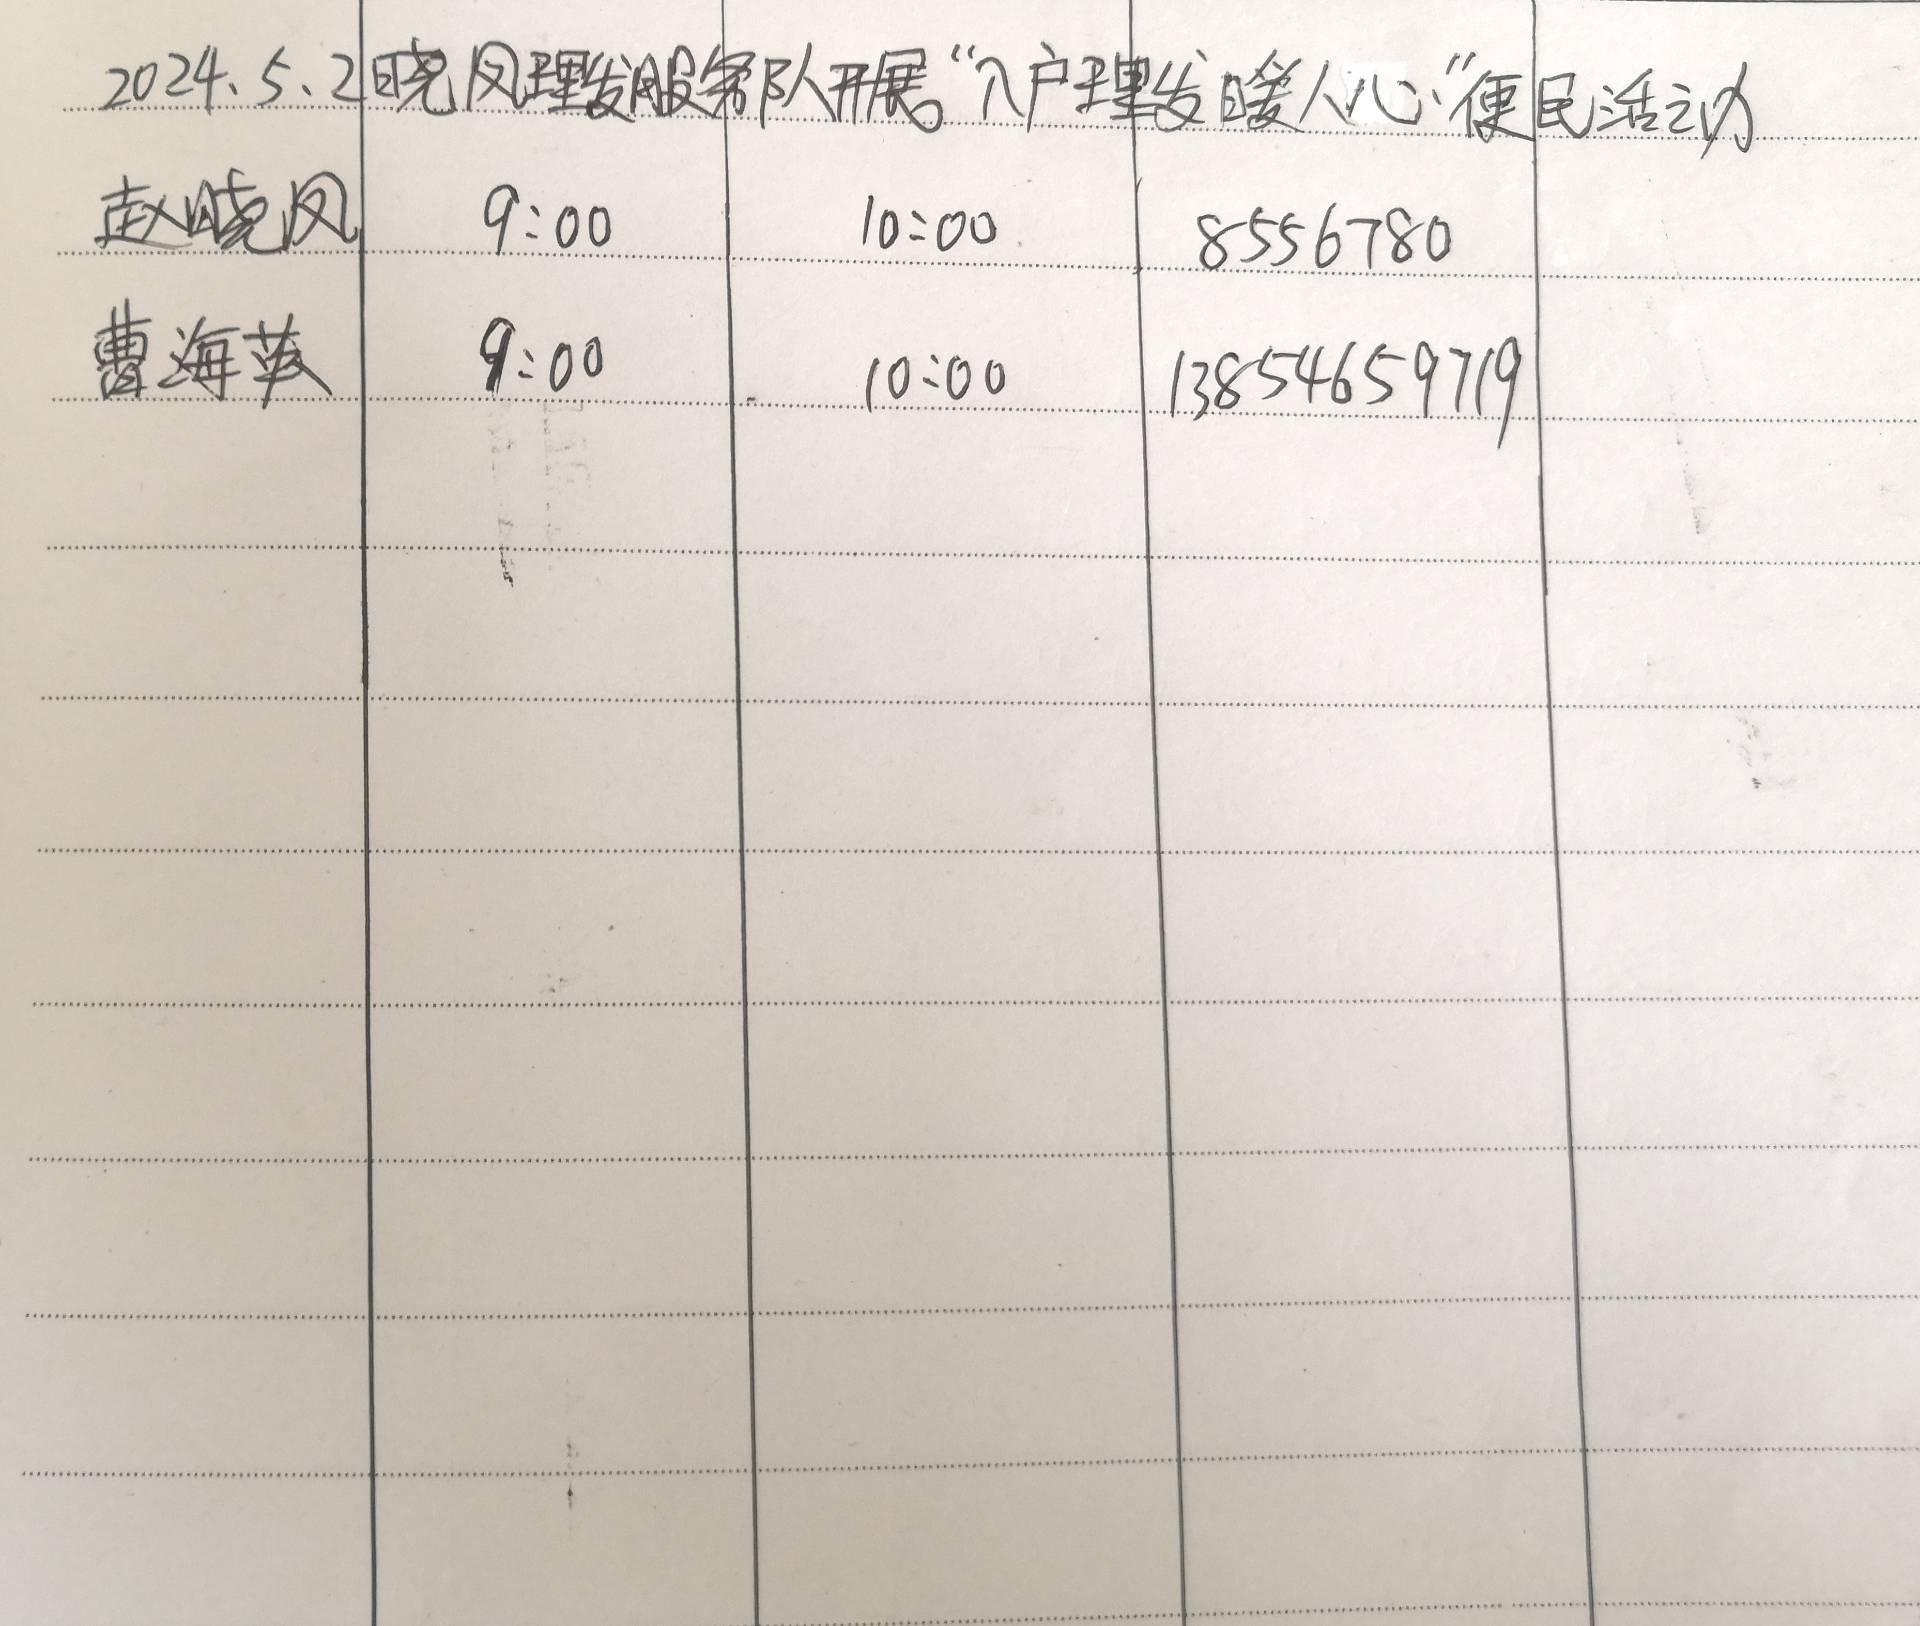 2024.5.2晓凤理发服务队开展“入户理发暖人心”便民活动
赵晓凤 9:00 10:00 8556780
曹海英 9:00 10:00 13854659719